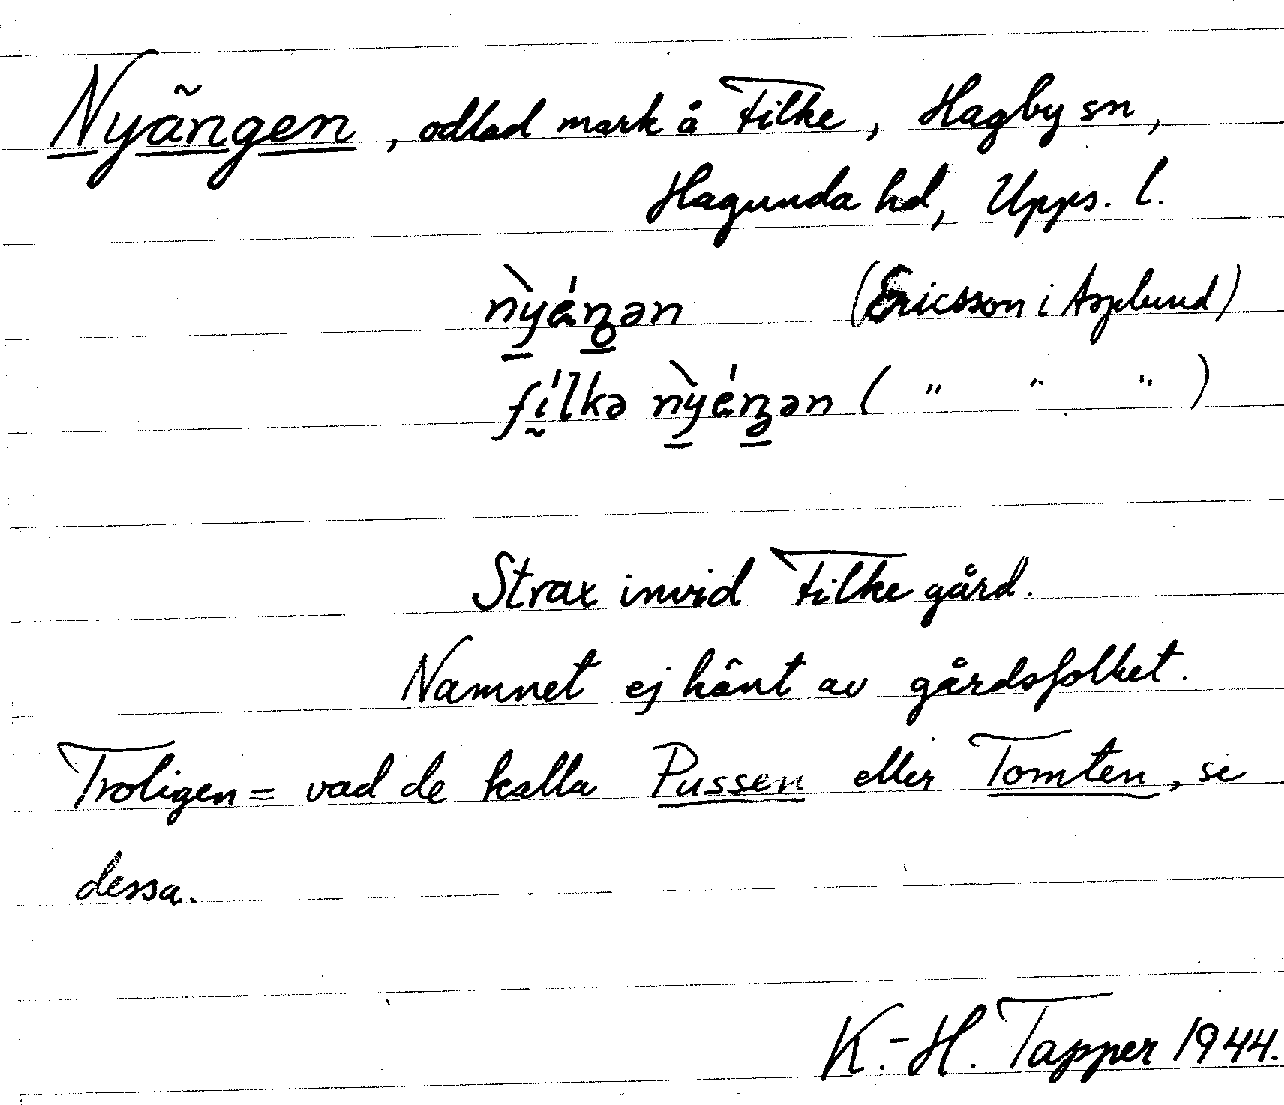 Nyängen, odlad mark å Filke, Hagby sn,
Hagunda hd, Upps. l.
nỳéŋən (Ericsson i Asplund)
fílkə nỳéŋən ( " " " )
Strax invid Filke gård.
Namnet ej känt av gårdsfolket.
Troligen = vad de kalla Pussen eller Tomten, se
dessa.
K.-H. Tapper 1944.